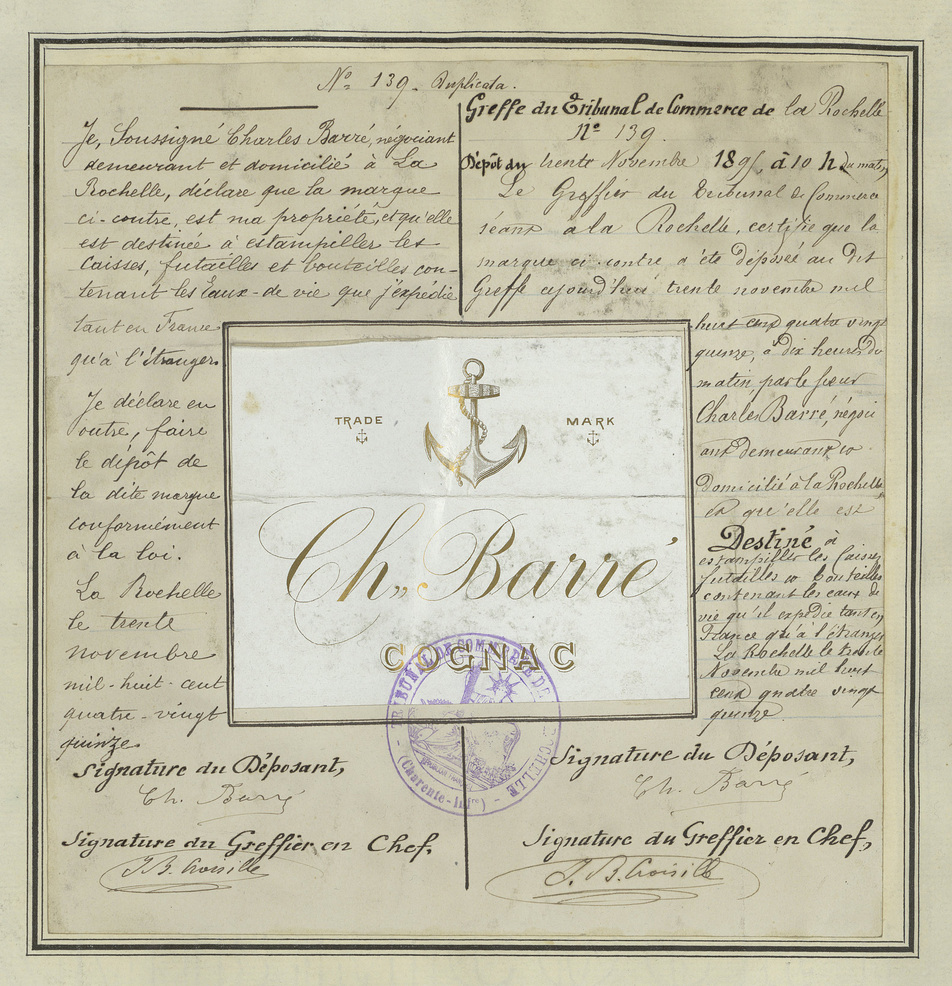 Nº 139. Duplicata.
Je, Soussigné Charles Barré, négociant
demeurant et domicilié à La
Rochelle, déclare que la marque
ci-contre, est ma propriété, et qu'elle
est destinée à estampiller les
Caisses, futailles et bouteilles con-
tenant les Eaux-de vie que j'expédie
tant en France
qu'à l'étranger.
Je déclare en
outre, faire
le dépôt de
la dite marque
conformément
à la loi.
La Rochelle
le trente
novembre
mil-huit-cent
quatre-vingt
quinze
Signature du Déposant,
Ch. Barré
Signature du Greffier en Chef,
Greffe du Tribunal de Commerce de la Rochelle
Nº 139.
Dépôt du trente Novembre 1895, à 10 h du matin
Le Greffier du Tribunal de Commerce
séant à la Rochelle, certifie que la
marque ci contre a été déposée au dit
Greffe aujourd'hui trente novembre mil
huit cent quatre vingt
quinze, à dix heures du
matin, par le sieur
Charles Barré, négoci
ant demeurant et
domicilié à la Rochelle,
et qu'elle est
Destiné à
estampiller les Caisses
futailles et bouteilles
contenant les eaux de
vie qu'il expédie tant en
France qu'à l'étranger
La Rochelle le trente
Novembre mil huit
cent quatre vingt
quinze.
Signature du Déposant,
Ch. Barré
Signature du Greffier en Chef,
TRADE MARK
Ch. Barré
COGNAC
TRIBUNAL DE COMMERCE DE LA ROCHELLE
(Charente-Infre)